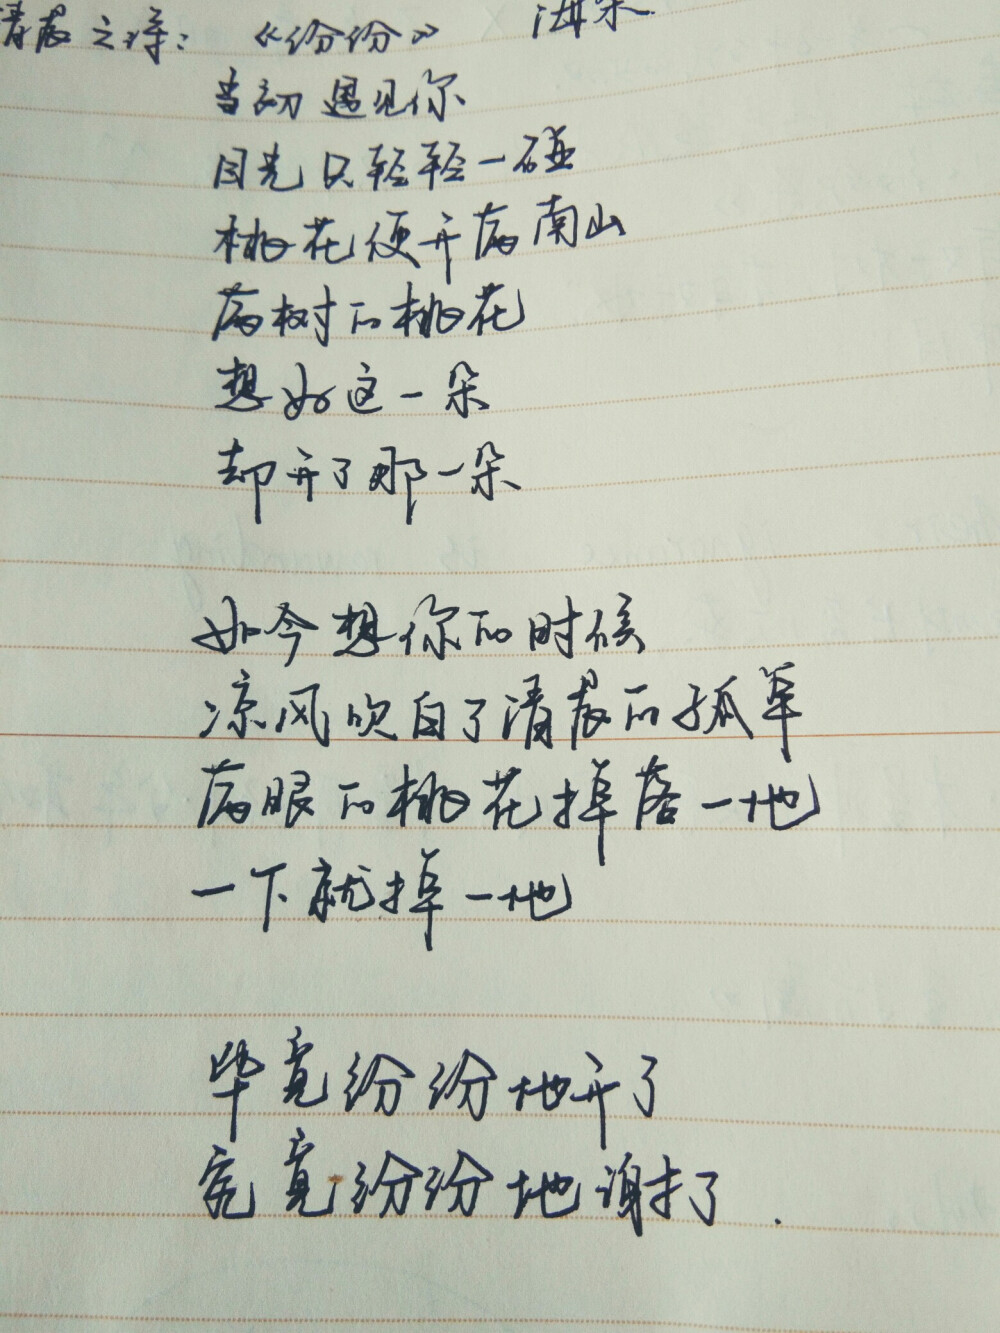 清晨之诗：《纷纷》 海呆
当初遇见你
目光只轻轻一碰
桃花便开满南山
满树的桃花
想好这一朵
却开了那一朵
如今想你的时候
凉风吹白了清晨的孤单
满眼的桃花掉落一地
一下就掉一地
毕竟纷纷地开了
究竟纷纷地谢了.